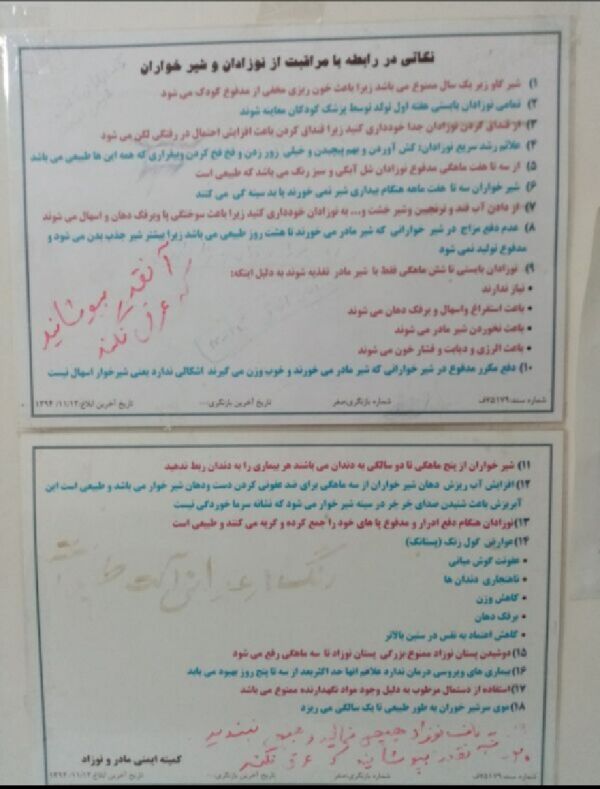 نکاتی در رابطه با مراقبت از نوزادان و شیر خواران
۱) شیر گاو زیر یک سال ممنوع می باشد زیرا باعث خون ریزی مخفی از مدفوع کودک می شود
۲) تمامی نوزادان بایستی هفته اول تولد توسط پزشک کودکان معاینه شوند
۳) از قنداق کردن نوزادان جدا خودداری کنید زیرا قنداق کردن باعث افزایش احتمال در رفتگی لگن می شود
۴) علائم رشد سریع نوزادان: کش آوردن و بهم پیچیدن و خیلی زور زدن و فخ فخ کردن وبیقراری که همه این ها طبیعی می باشد
۵) از سه تا هفت ماهگی مدفوع نوزادان شل آبکی و سبز رنگ می باشد که طبیعی است
۶) شیر خواران سه تا هفت ماهه هنگام بیداری شیر نمی خورند یا بد سینه گی می کنند
۷) از دادن آب قند و ترنجبین وشیر خشت و... به نوزادان خودداری کنید زیرا باعث سوختگی پا وبرفک دهان و اسهال می شوند
۸) عدم دفع مزاج در شیر خوارانی که شیر مادر می خورند تا هشت روز طبیعی می باشد زیرا بیشتر شیر جذب بدن می شود و
مدفوع تولید نمی شود
۹) نوزادان بایستی تا شش ماهگی فقط با شیر مادر تغذیه شوند به دلیل اینکه:
• نیاز ندارند
• باعث استفراغ واسهال و برفک دهان می شوند
• باعث نخوردن شیر مادر می شوند
• باعث الرژی و دیابت و فشار خون می شوند
۱۰) دفع مکرر مدفوع در شیر خوارانی که شیر مادر می خورند و خوب وزن می گیرند اشکالی ندارد یعنی شیرخوار اسهال نیست
آنقدر بپوشانید
که عرق نکند
شماره سند:۷۵۱۷۹ف شماره بازنگری:صفر تاریخ آخرین بازنگری:... تاریخ آخرین ابلاغ:۱۳۹۴/۱۱/۱۲
۱۱) شیر خواران از پنج ماهگی تا دو سالگی به دندان می باشند هر بیماری را به دندان ربط ندهید
۱۲) افزایش آب ریزش دهان شیر خواران از سه ماهگی برای ضد عفونی کردن دست ودهان شیر خوار می باشد و طبیعی است این
آبریزش باعث شنیدن صدای خر خر در سینه شیر خوار می شود که نشانه سرما خوردگی نیست
۱۳) نوزادان هنگام دفع ادرار و مدفوع پا های خود را جمع کرده و گریه می کنند و طبیعی است
۱۴) عوارض گول زنک (پستانک)
• عفونت گوش میانی
• ناهنجاری دندان ها
• کاهش وزن
• برفک دهان
• کاهش اعتماد به نفس در سنین بالاتر
۱۵) دوشیدن پستان نوزاد ممنوع بزرگی پستان نوزاد تا سه ماهگی رفع می شود
۱۶) بیماری های ویروسی درمان ندارد علائم انها حد اکثربعد از سه تا پنج روز بهبود می یابد
۱۷) استفاده از دستمال مرطوب به دلیل وجود مواد نگهدارنده ممنوع می باشد
۱۸) موی سرشیر خوران به طور طبیعی تا یک سالگی می ریزد
به ناف نوزاد چیزی نمالید و چیزی نبندید
بپوشانید که عرق نکند
کمیته ایمنی مادر و نوزاد
شماره سند:۷۵۱۷۹ف شماره بازنگری:صفر تاریخ آخرین بازنگری:... تاریخ آخرین ابلاغ:۱۳۹۴/۱۱/۱۲